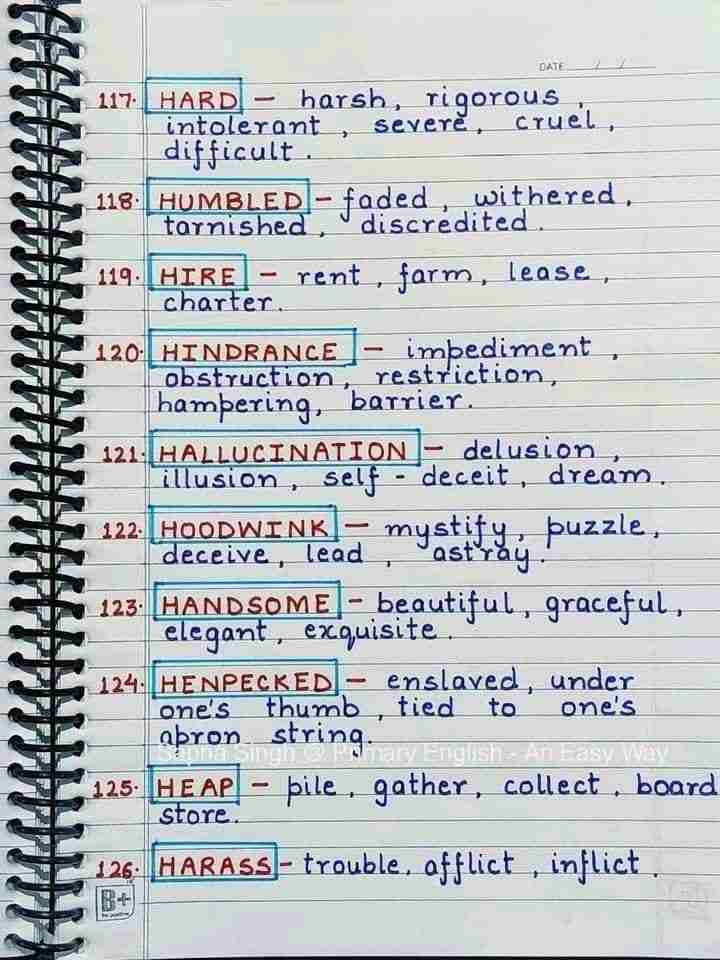 DATE / /
117. HARD - harsh, rigorous,
intolerant, severe, cruel,
difficult.
118. HUMBLED - faded, withered,
tarnished, discredited.
119. HIRE - rent, farm, lease,
charter.
120. HINDRANCE - impediment,
obstruction, restriction,
hampering, barrier.
121. HALLUCINATION - delusion,
illusion, self-deceit, dream.
122. HOODWINK - mystify, puzzle,
deceive, lead, astray.
123. HANDSOME - beautiful, graceful,
elegant, exquisite.
124. HENPECKED - enslaved, under
one's thumb, tied to one's
apron string.
Sapna Singh @ Primary English - An Easy Way
125. HEAP - pile, gather, collect, board
store.
126. HARASS - trouble, afflict, inflict.
B+
be positive